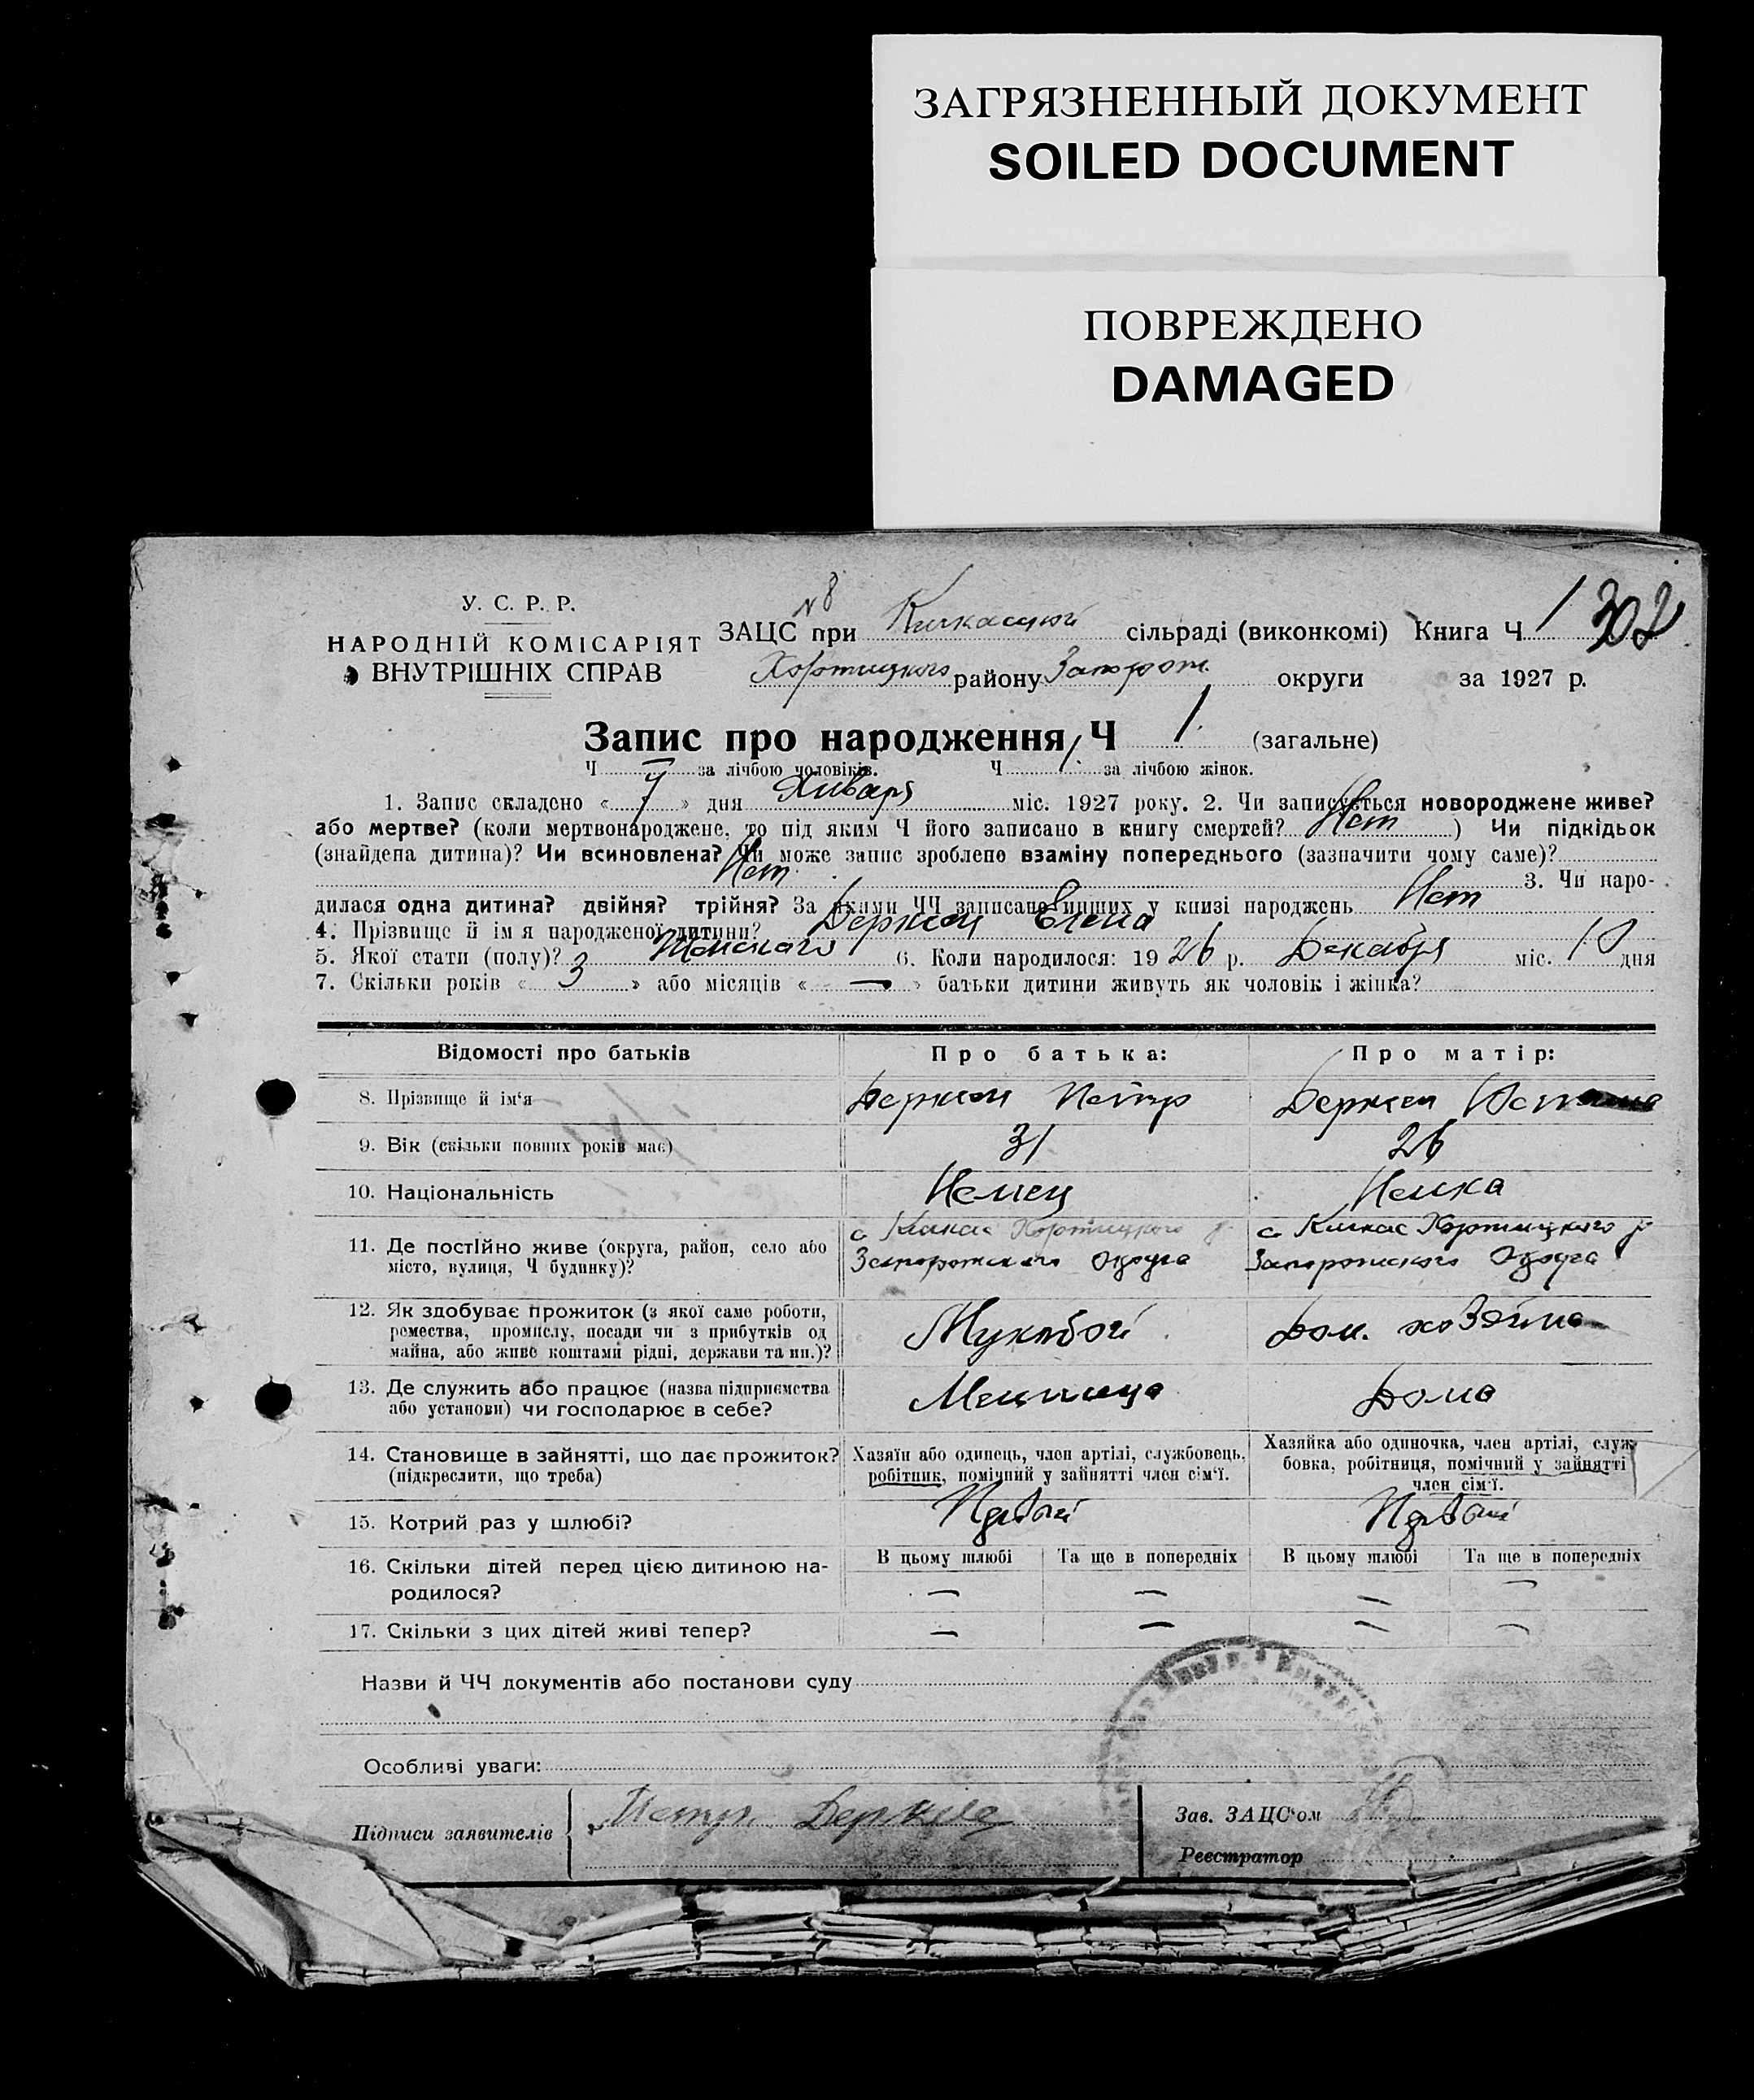 ЗАГРЯЗНЕННЫЙ ДОКУМЕНТ
SOILED DOCUMENT
ПОВРЕЖДЕНО
DAMAGED
У. С. Р. Р.
НАРОДНІЙ КОМІСАРІЯТ
ВНУТРІШНІХ СПРАВ
№ 8
ЗАЦС при Кичкаской сільраді (виконкомі) Книга Ч 1 302
Хортицкого району Запорож. округи за 1927 р.
Запис про народження Ч 1 (загальне)
Ч за лічбою чоловіків. Ч 1 за лічбою жінок.
1. Запис складено « 4 » дня Января міс. 1927 року. 2. Чи записується новороджене живе?
або мертве? (коли мертвонароджене, то під яким Ч його записано в книгу смертей? Нет ) Чи підкідьок
(знайдена дитина)? Чи всиновлена? Чи може запис зроблено взаміну попереднього (зазначити чому саме)?
Нет 3. Чи наро-
дилася одна дитина? двійня? трійня? За якими ЧЧ записано инших у книзі народжень Нет
4. Прізвище й ім'я народженої дитини? Дерксен Елена
5. Якої стати (полу)? Женского 6. Коли народилося: 1926 р. Декабря міс. 10 дня
7. Скільки років « 3 » або місяців « — » батьки дитини живуть як чоловік і жінка?
Відомості про батьків Про батька: Про матір:
8. Прізвище й ім'я Дерксен Петр Дерксен
9. Вік (скільки повних років має) 31 26
10. Національність Немец Немка
11. Де постійно живе (округа, район, село або місто, вулиця, Ч будинку)?
с Кичкас Хортицкого р Запорожского Округа
с Кичкас Хортицкого р Запорожского Округа
12. Як здобуває прожиток (з якої саме роботи,
ремества, промислу, посади чи з прибутків од
майна, або живе коштами рідні, держави та ин.)?
Мукобой Дом. хозяйка
13. Де служить або працює (назва підприємства
або установи) чи господарює в себе?
Мельница Дома
14. Становище в зайнятті, що дає прожиток?
(підкреслити, що треба)
Хазяїн або одинець, член артілі, службовець,
робітник, помічний у зайнятті член сім'ї.
Хазяйка або одиночка, член артілі, служ-
бовка, робітниця, помічний у зайнятті
член сім'ї.
15. Котрий раз у шлюбі? Первый Первый
16. Скільки дітей перед цією дитиною на-
родилося?
В цьому шлюбі Та ще в попередніх В цьому шлюбі Та ще в попередніх
— — — —
17. Скільки з цих дітей живі тепер? — — — —
Назви й ЧЧ документів або постанови суду
Особливі уваги:
Підписи заявителів Петр Дерксен
Зав. ЗАЦС'ом
Реєстратор